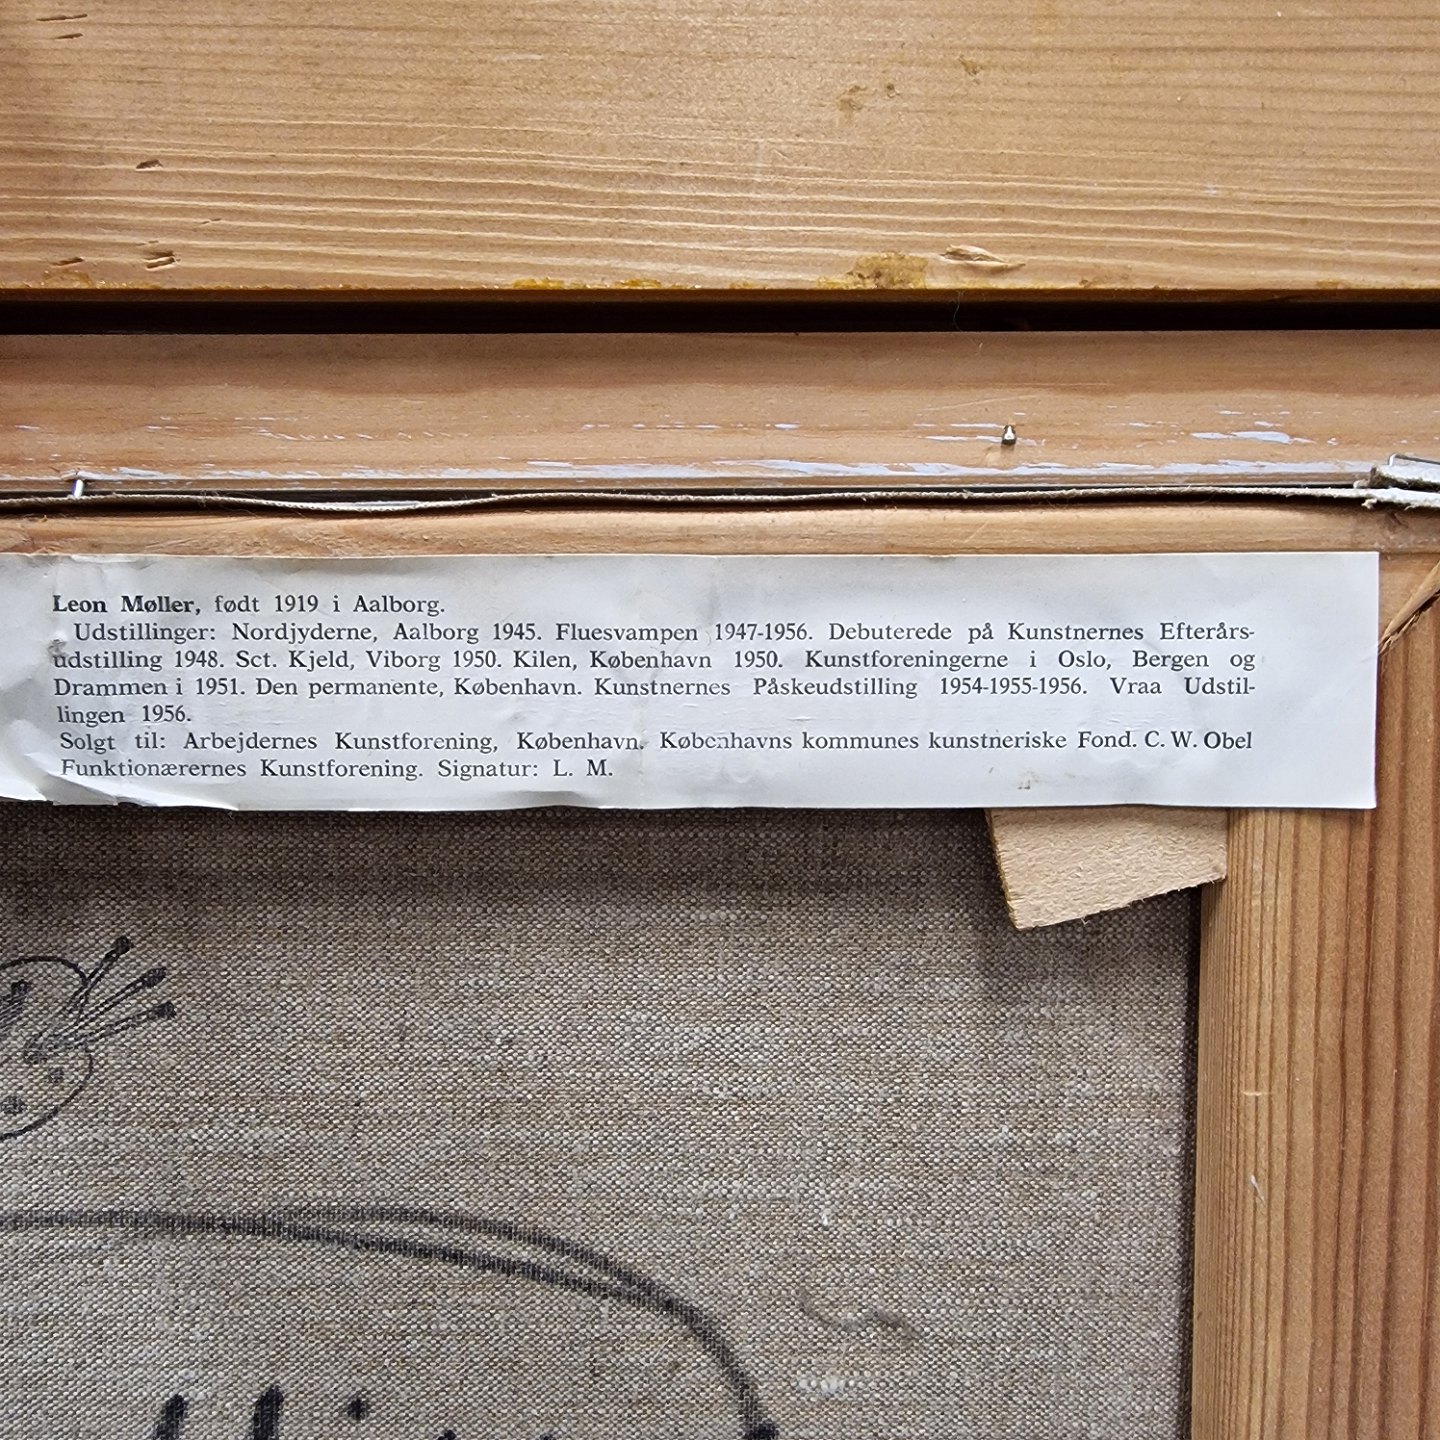 Leon Møller, født 1919 i Aalborg.
Udstillinger: Nordjyderne, Aalborg 1945. Fluesvampen 1947-1956. Debuterede på Kunstnernes Efterårs-
udstilling 1948. Sct. Kjeld, Viborg 1950. Kilen, København 1950. Kunstforeningerne i Oslo, Bergen og
Drammen i 1951. Den permanente, København. Kunstnernes Påskeudstilling 1954-1955-1956. Vraa Udstil-
lingen 1956.
Solgt til: Arbejdernes Kunstforening, København. Københavns kommunes kunstneriske Fond. C. W. Obel
Funktionærernes Kunstforening. Signatur: L. M.